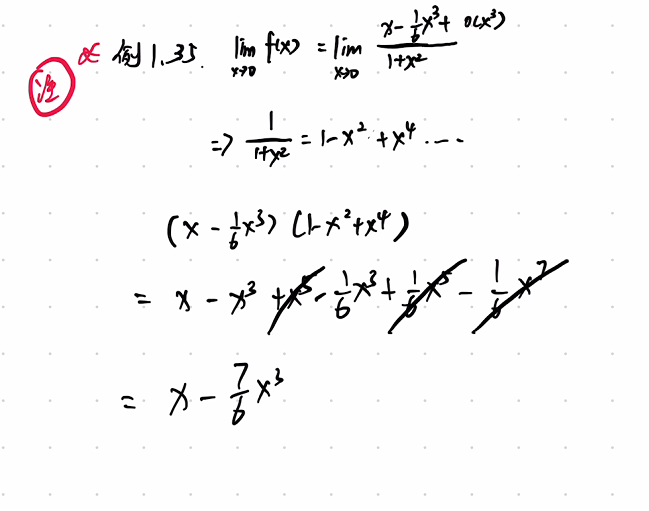 注 例1.35. lim x→0 f(x) = lim x→0 (x - 1/6 x³ + o(x³)) / (1+x²)
=> 1/(1+x²) = 1-x² + x⁴ ....
(x - 1/6 x³) (1-x²+x⁴)
= x - x³ + x⁵ - 1/6 x³ + 1/6 x⁵ - 1/6 x⁷
= x - 7/6 x³